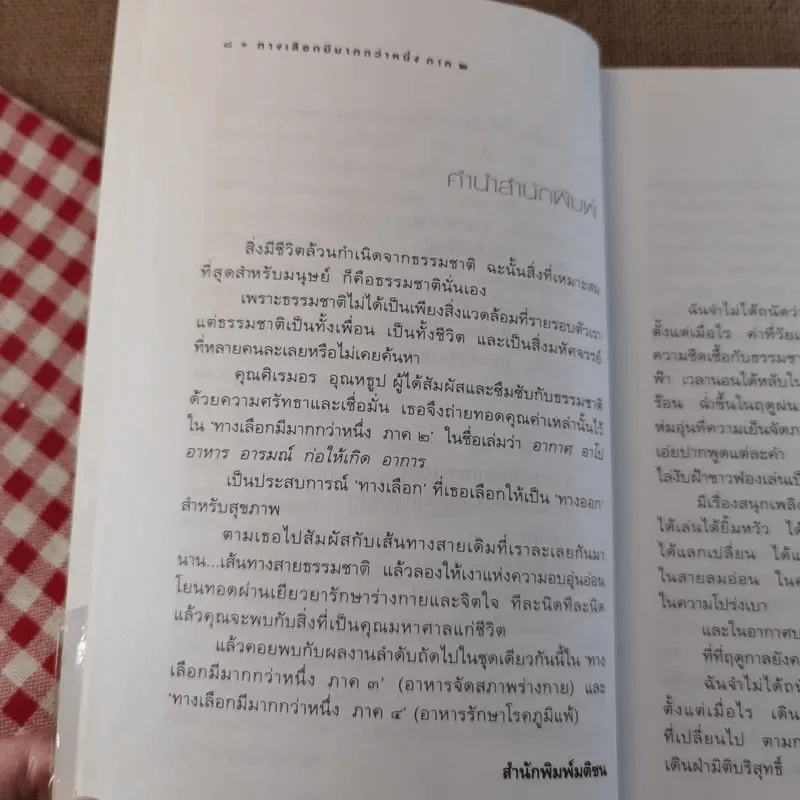 ๘ + ทางเลือกมีมากกว่าหนึ่ง ภาค ๒
คำนำสำนักพิมพ์
สิ่งมีชีวิตล้วนกำเนิดจากธรรมชาติ ฉะนั้นสิ่งที่เหมาะสม
ที่สุดสำหรับมนุษย์ ก็คือธรรมชาตินั่นเอง
เพราะธรรมชาติไม่ได้เป็นเพียงสิ่งแวดล้อมที่รายรอบตัวเรา
แต่ธรรมชาติเป็นทั้งเพื่อน เป็นทั้งชีวิต และเป็นสิ่งมหัศจรรย์
ที่หลายคนละเลยหรือไม่เคยค้นหา
คุณศิเรมอร อุณหธูป ผู้ได้สัมผัสและซึมซับกับธรรมชาติ
ด้วยความศรัทธาและเชื่อมั่น เธอจึงถ่ายทอดคุณค่าเหล่านั้นไว้
ใน 'ทางเลือกมีมากกว่าหนึ่ง ภาค ๒' ในชื่อเล่มว่า อากาศ อาโป
อาหาร อารมณ์ ก่อให้เกิด อาการ
เป็นประสบการณ์ 'ทางเลือก' ที่เธอเลือกให้เป็น 'ทางออก'
สำหรับสุขภาพ
ตามเธอไปสัมผัสกับเส้นทางสายเดิมที่เราละเลยกันมา
นาน...เส้นทางสายธรรมชาติ แล้วลองให้เงาแห่งความอบอุ่นอ่อน
โยนทอดผ่านเยียวยารักษาร่างกายและจิตใจ ทีละนิดทีละนิด
แล้วคุณจะพบกับสิ่งที่เป็นคุณมหาศาลแก่ชีวิต
แล้วคอยพบกับผลงานลำดับถัดไปในชุดเดียวกันนี้ใน 'ทาง
เลือกมีมากกว่าหนึ่ง ภาค ๓' (อาหารจัดสภาพร่างกาย) และ
'ทางเลือกมีมากกว่าหนึ่ง ภาค ๔' (อาหารรักษาโรคภูมิแพ้)
สำนักพิมพ์มติชน
ฉันจำไม่ได้ถนัดว่า
ตั้งแต่เมื่อไร ค่าที่วัย
ความชิดเชื้อกับธรรมชา
ฟ้า เวลานอนได้หลับใน
ร้อน ฉ่ำชื้นในฤดูฝน
ห่มอุ่นที่ความเย็นจัด
เอ่ยปากพูดแต่ละคำ
ไล่งับฝ้าขาวฟ่องเล่น
มีเรื่องสนุกเพลิ
ได้เล่นได้ยิ้มหัว ได้
ได้แลกเปลี่ยน ได้
ในสายลมอ่อน ใน
ในความโปร่งเบา
และในอากาศ
ที่ที่ฤดูกาลยังค
ฉันจำไม่ได้ถนั
ตั้งแต่เมื่อไร เดิน
ที่เปลี่ยนไป ตาม
เดินฝ่ามิติบริสุทธิ์